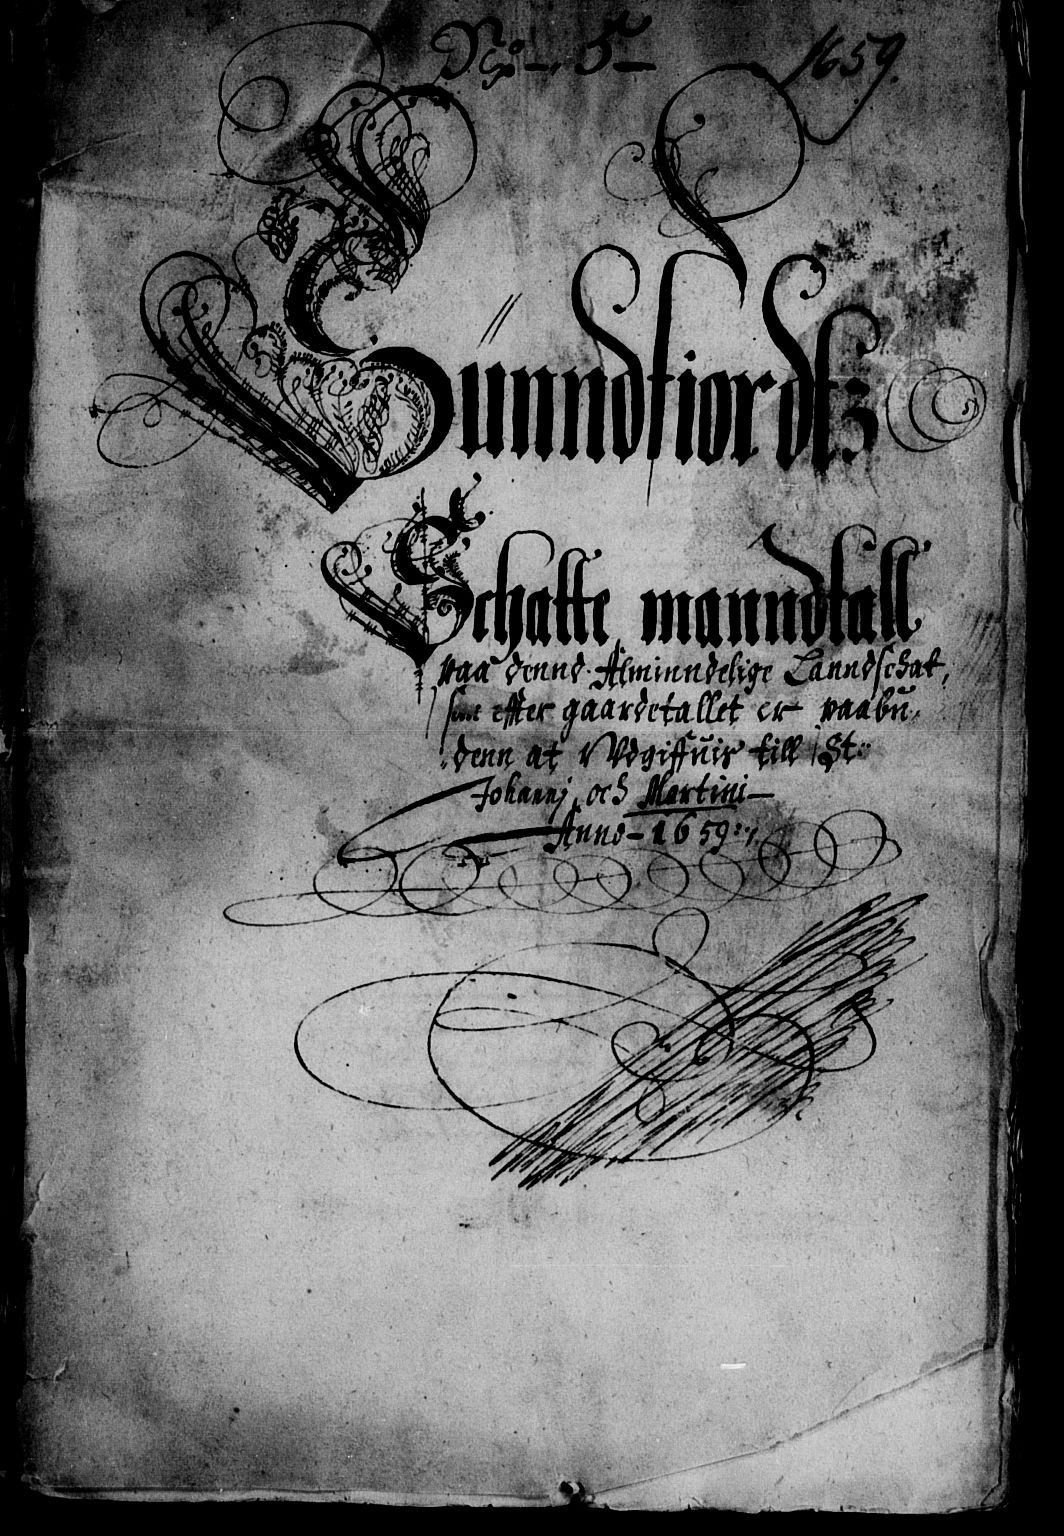 No 5 1659.
Sünndfiordtz
Schatte manndtall
paa dennd Alminndelige Lanndschat,
som effter gaardetallet er paabu,
denn at Vdgiffuis till St:
Johannj, och Martini
Anno 1659: